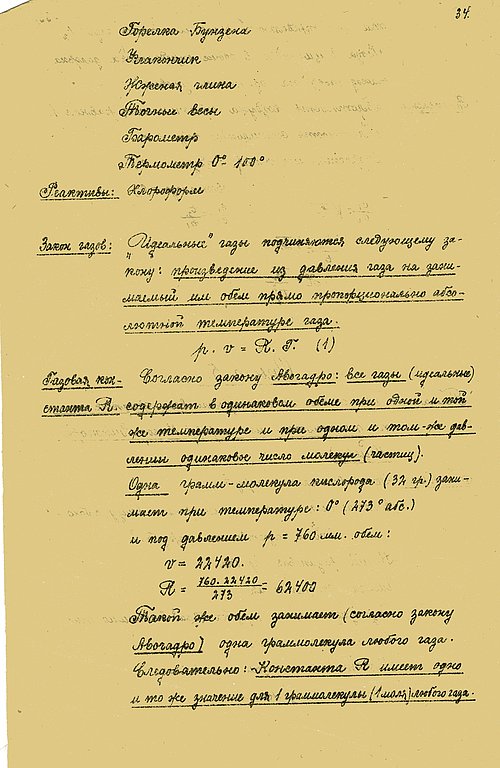 34.
Горелка Бунзена
Стаканчик
Жженая глина
Точные весы
Барометр
Термометр 0° 100°
Реактивы: Хлороформ
Закон газов: "Идеальные" газы подчиняются следующему за-
кону: произведение из давления газа на зани-
маемый им обем прямо пропорционально абсо-
лютной температуре газа.
p. v = R. T. (1)
Газовая кон- Согласно закону Авогадро: все газы (идеальные)
станта R. содержат в одинаковом обеме при одной и той
же температуре и при одном и том-же дав-
лении одинаковое число молекул (частиц).
Одна грамм-молекула кислорода (32 гр.) зани-
мает при температуре: 0° (273° абс.)
и под давлением p = 760 мм. обем:
v = 22420.
R = 760. 22420 / 273 = 62400
Такой же обем занимает (согласно закону
Авогадро) одна граммолекула любого газа.
Следовательно: Константа R имеет одно
и то же значение для 1 граммолекулы (1 моля) любого газа.